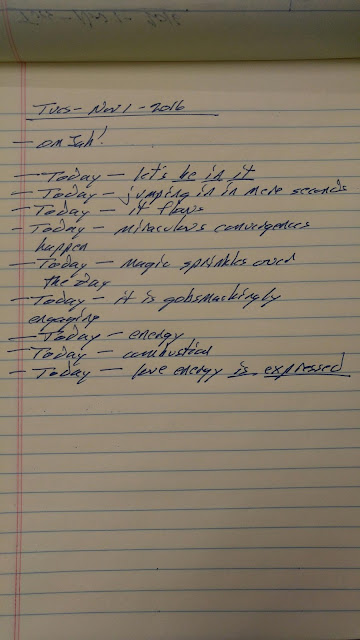 Tues - Nov 1 - 2016
- om Jah!
- Today - let's be in it
- Today - jumping in in mere seconds
- Today - it flows
- Today - miraculous convergences
happen
- Today - magic sprinkles over
the day
- Today - it is gobsmackingly
engaging
- Today - energy
- Today - combustical
- Today - love energy is expressed